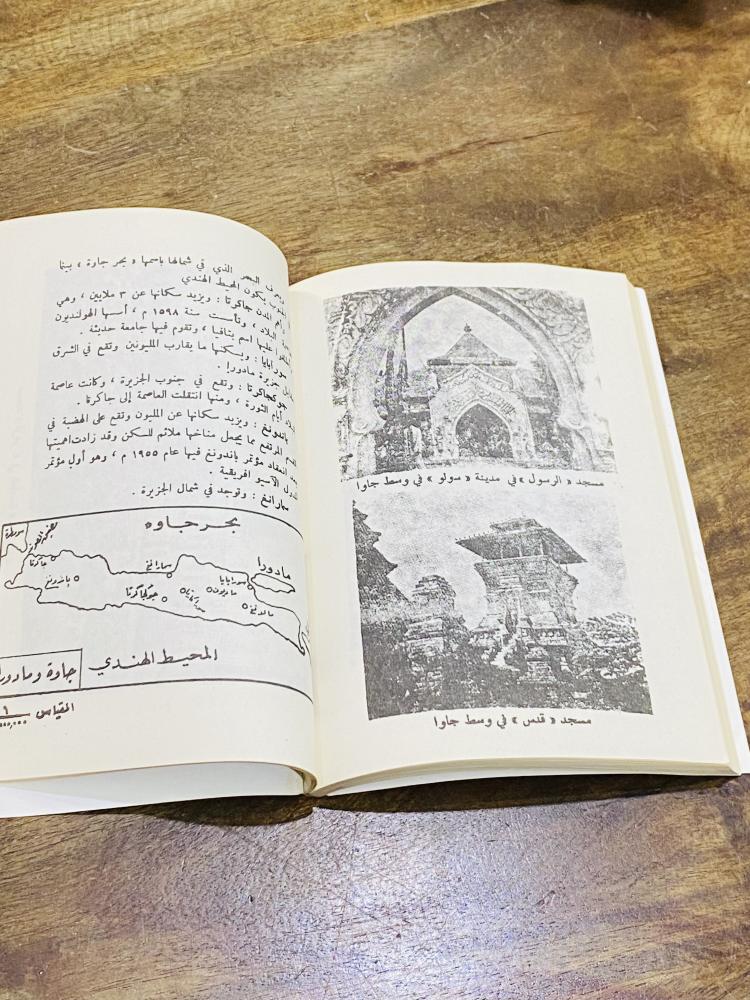 البحر الذي في شمالها باسمها « بحر جاوة ، بينما
يكون المحيط الهندي
المدن جاكرتا : ويزيد سكانها عن ٣ ملايين ، وهي
البلاد ، وتأسست سنة ١٥٩٨ م ، أسسها الهولنديون
عليها اسم بتافيا ، وتقوم فيها جامعة حديثة .
سورابايا : ويسكنها ما يقارب المليونين وتقع في الشرق
جزيرة مادورا .
جوكجاكرتا : وتقع في جنوب الجزيرة ، وكانت عاصمة
أيام الثورة ، ومنها انتقلت العاصمة إلى جاكرتا .
باندونغ : ويزيد سكانها عن المليون وتقع على الهضبة في
المرتفع مما يجعل مناخها ملائم للسكن وقد زادت اهميتها
انعقاد مؤتمر باندونغ فيها عام ١٩٥٥ م ، وهو أول مؤتمر
الآسيو افريقية .
سمارانغ : وتوجد في شمال الجزيرة .
بحر جاوه
سومطرة
جاكرتا
باندونغ
سمارانغ
جوكجاكرتا
مادورا
سورابايا
ماديون
مالانغ
المحيط الهندي
جاوة ومادورا
المقياس ١
مسجد « الرسول » في مدينة « سولو » في وسط جاوا
مسجد « قدس » في وسط جاوا